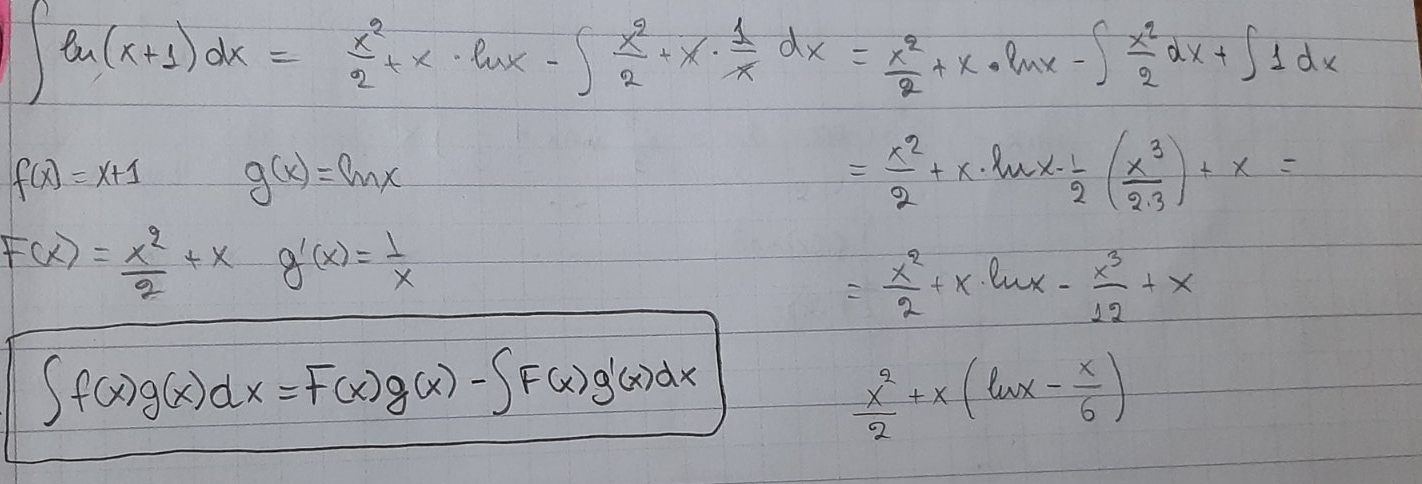 ∫ ln(x+1)dx = x²/2 + x · lnx - ∫ x²/2 + x · 1/x dx = x²/2 + x · lnx - ∫ x²/2 dx + ∫ 1 dx
f(x) = x+1 g(x) = lnx
= x²/2 + x · lnx - 1/2 (x³/2·3) + x =
F(x) = x²/2 + x g'(x) = 1/x
= x²/2 + x · lnx - x³/12 + x
∫ f(x)g(x)dx = F(x)g(x) - ∫ F(x)g'(x)dx
x²/2 + x (lnx - x/6)